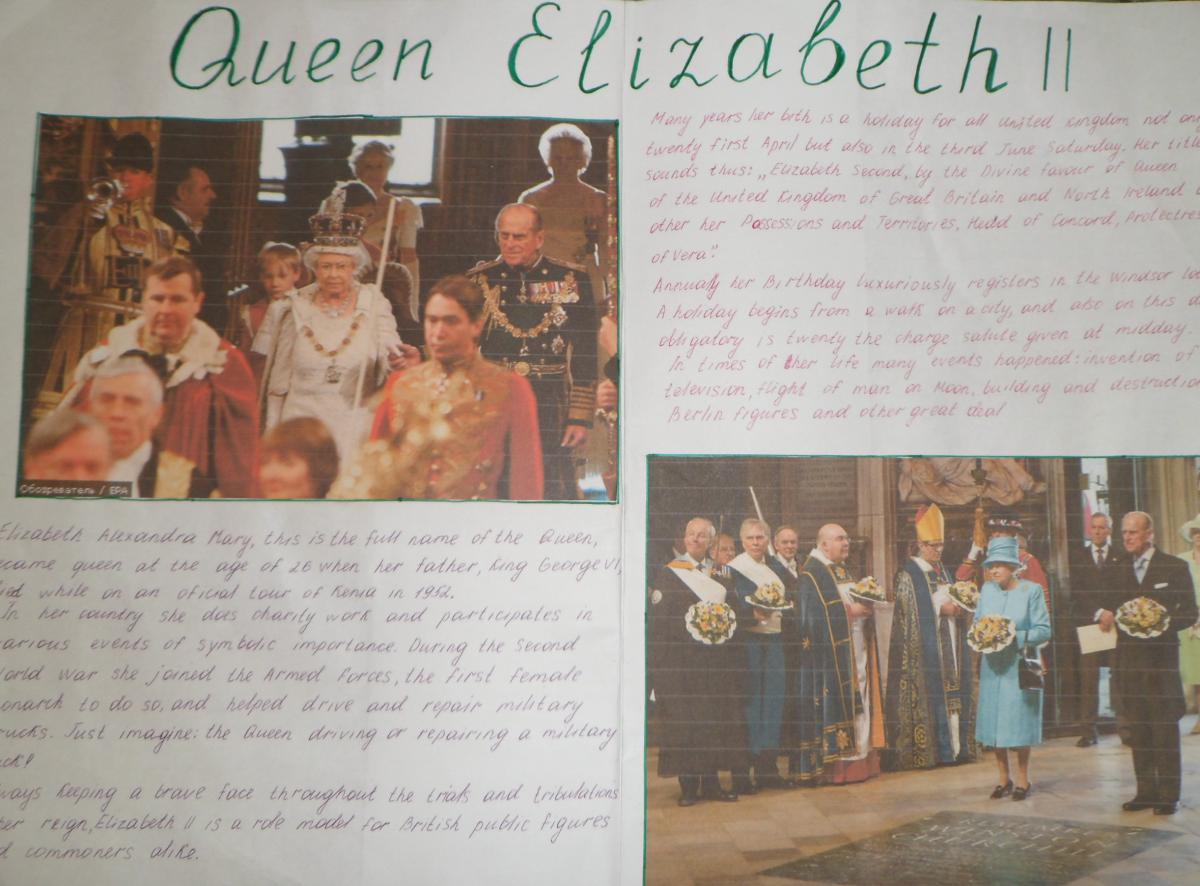 Queen Elizabeth II
Обозреватель / EPA
Elizabeth Alexandra Mary, this is the full name of the Queen,
came queen at the age of 26 when her father, King George VI,
ied while on an oficial tour of Kenia in 1952.
In her country she does charity work and participates in
arious events of symbolic importance. During the Second
orld war she joined the Armed Forces, the first female
onarch to do so, and helped drive and repair military
rucks. Just imagine: the Queen driving or repairing a military
uck!
ways keeping a brave face throughout the trials and tribulations
her reign, Elizabeth II is a role model for British public figures
d commoners alike.
Many years her birth is a holiday for all united kingdom not on
twenty first April but also in the third June Saturday. Her title
sounds thus: „Elizabeth Second, by the Divine favour of Queen
of the United Kingdom of Great Britain and North Ireland
other her Possessions and Territories, Head of Concord, Protectre
of Vera".
Annually her Birthday luxuriously registers in the Windsor
A holiday begins from a walk on a city, and also on this d
obligatory is twenty the charge salute given at midday.
In times of her life many events happened: invention of
television, flight of man on Moon, building and destructio
Berlin figures and other great deal